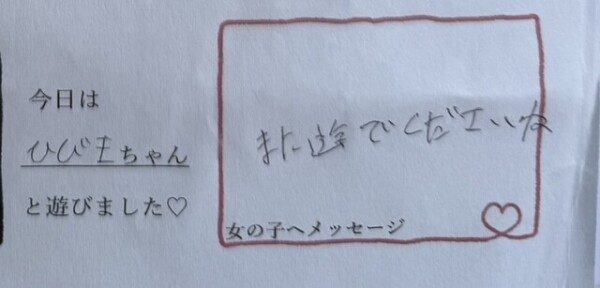 今日は
ひび王ちゃん
と遊びました♡
また遊んでくださいね
女の子へメッセージ